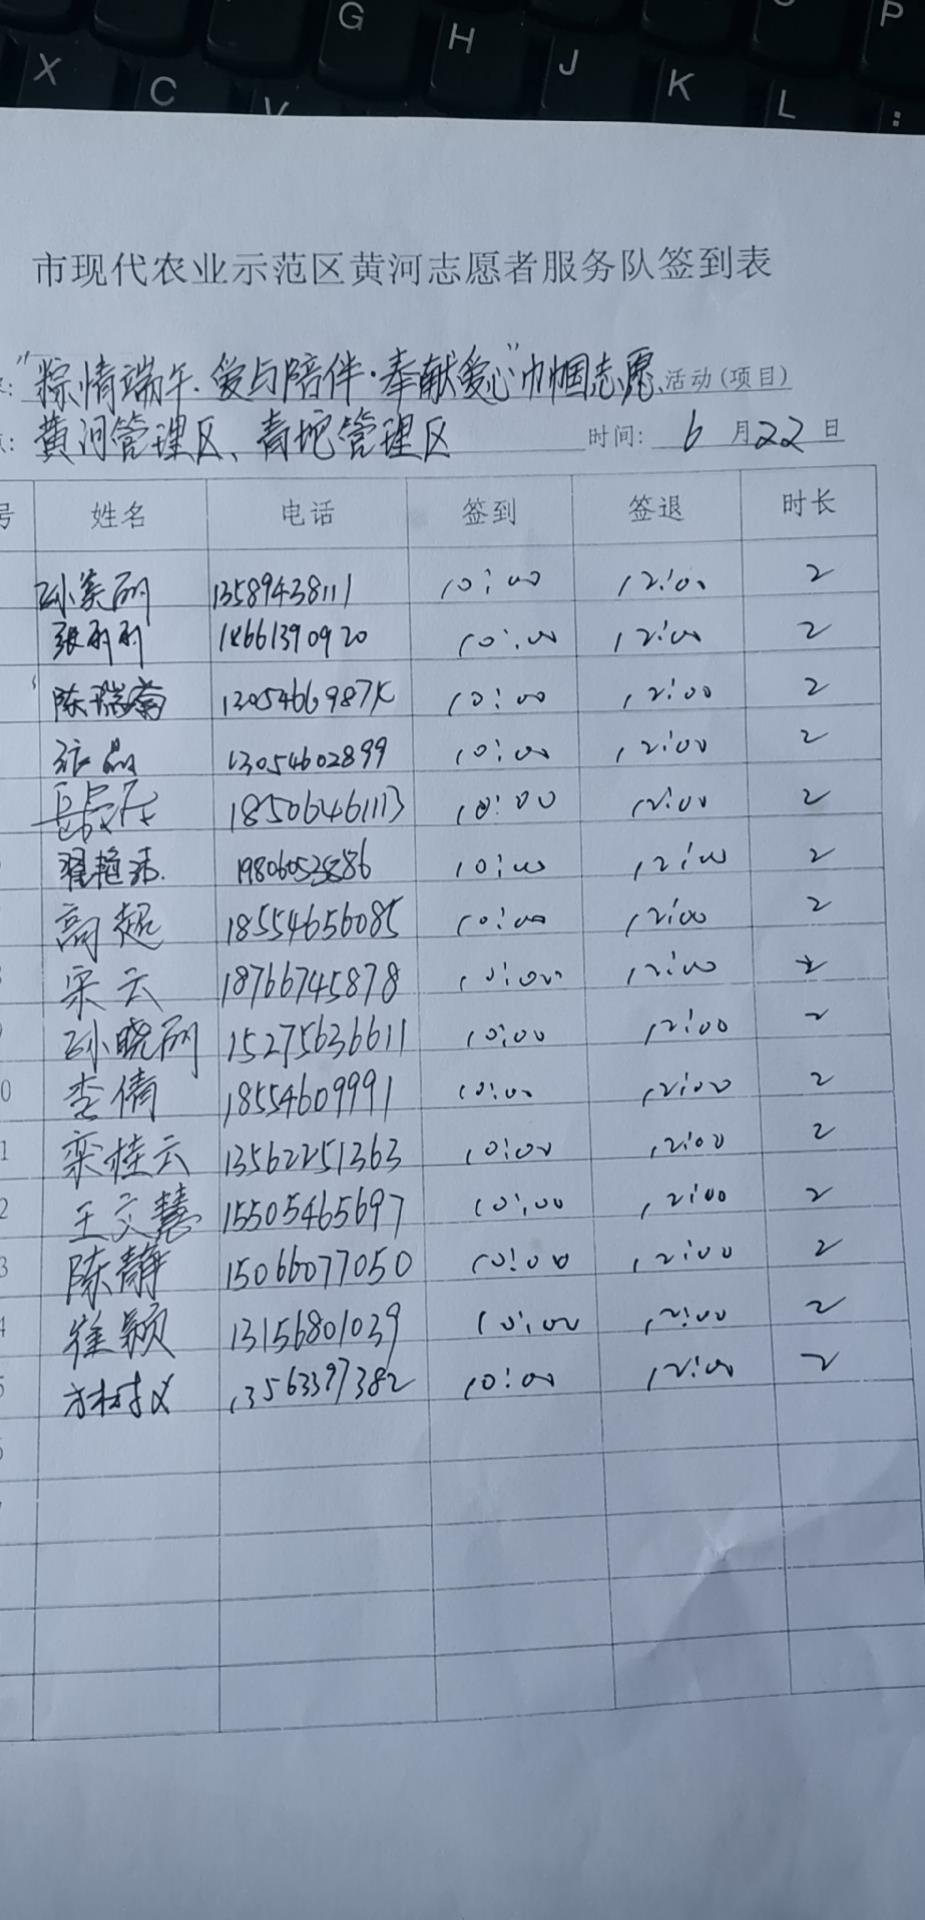 G H J K L P
X C V :
市现代农业示范区黄河志愿者服务队签到表
: "粽情端午.爱与陪伴·奉献爱心"巾帼志愿 活动(项目)
: 黄河管理区、青坨管理区 时间: 6 月 22 日
号 姓名 电话 签到 签退 时长
孙美丽 13589438111 10:00 12:00 2
张利利 10:00 12:00 2
陈瑞菊 10:00 12:00 2
张晶 13054602899 10:00 12:00 2
18506461113 10:00 12:00 2
翟艳沛 10:00 12:00 2
高超 18554656085 10:00 12:00 2
宋云 18766745878 10:00 12:00 2
孙晓丽 15275636611 10:00 12:00 2
0 李倩 18554609991 10:00 12:00 2
1 栾桂云 13562251363 10:00 12:00 2
2 王文慧 15505465697 10:00 12:00 2
3 陈静 15066077050 10:00 12:00 2
4 徐颖 13156801039 10:00 12:00 2
5 方树义 13563397382 10:00 12:00 2